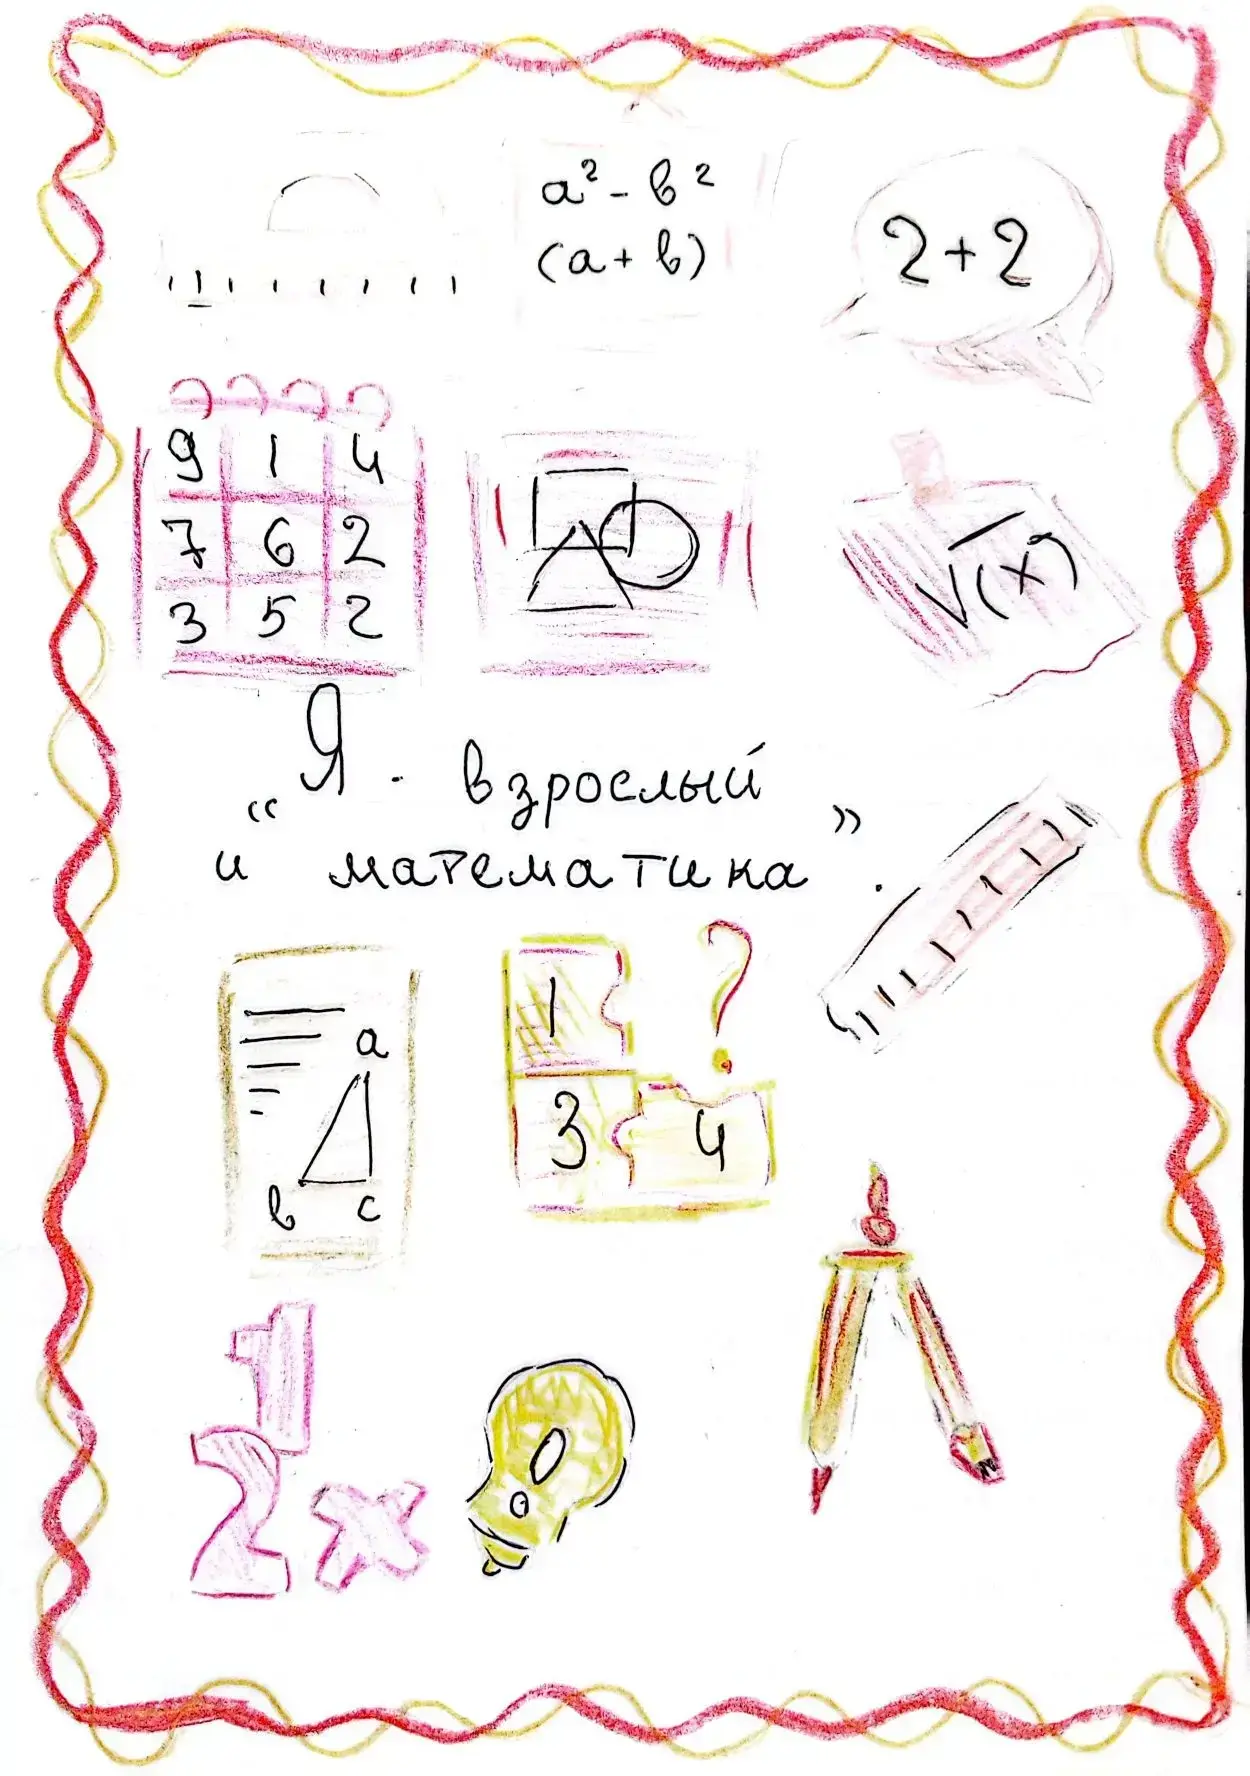 a² - в²
(a + в)
2 + 2
9 1 4
7 6 2
3 5 2
√(x)
"Я - взрослый
и математика".
a
в c
1 ?
3 4
1
2 x